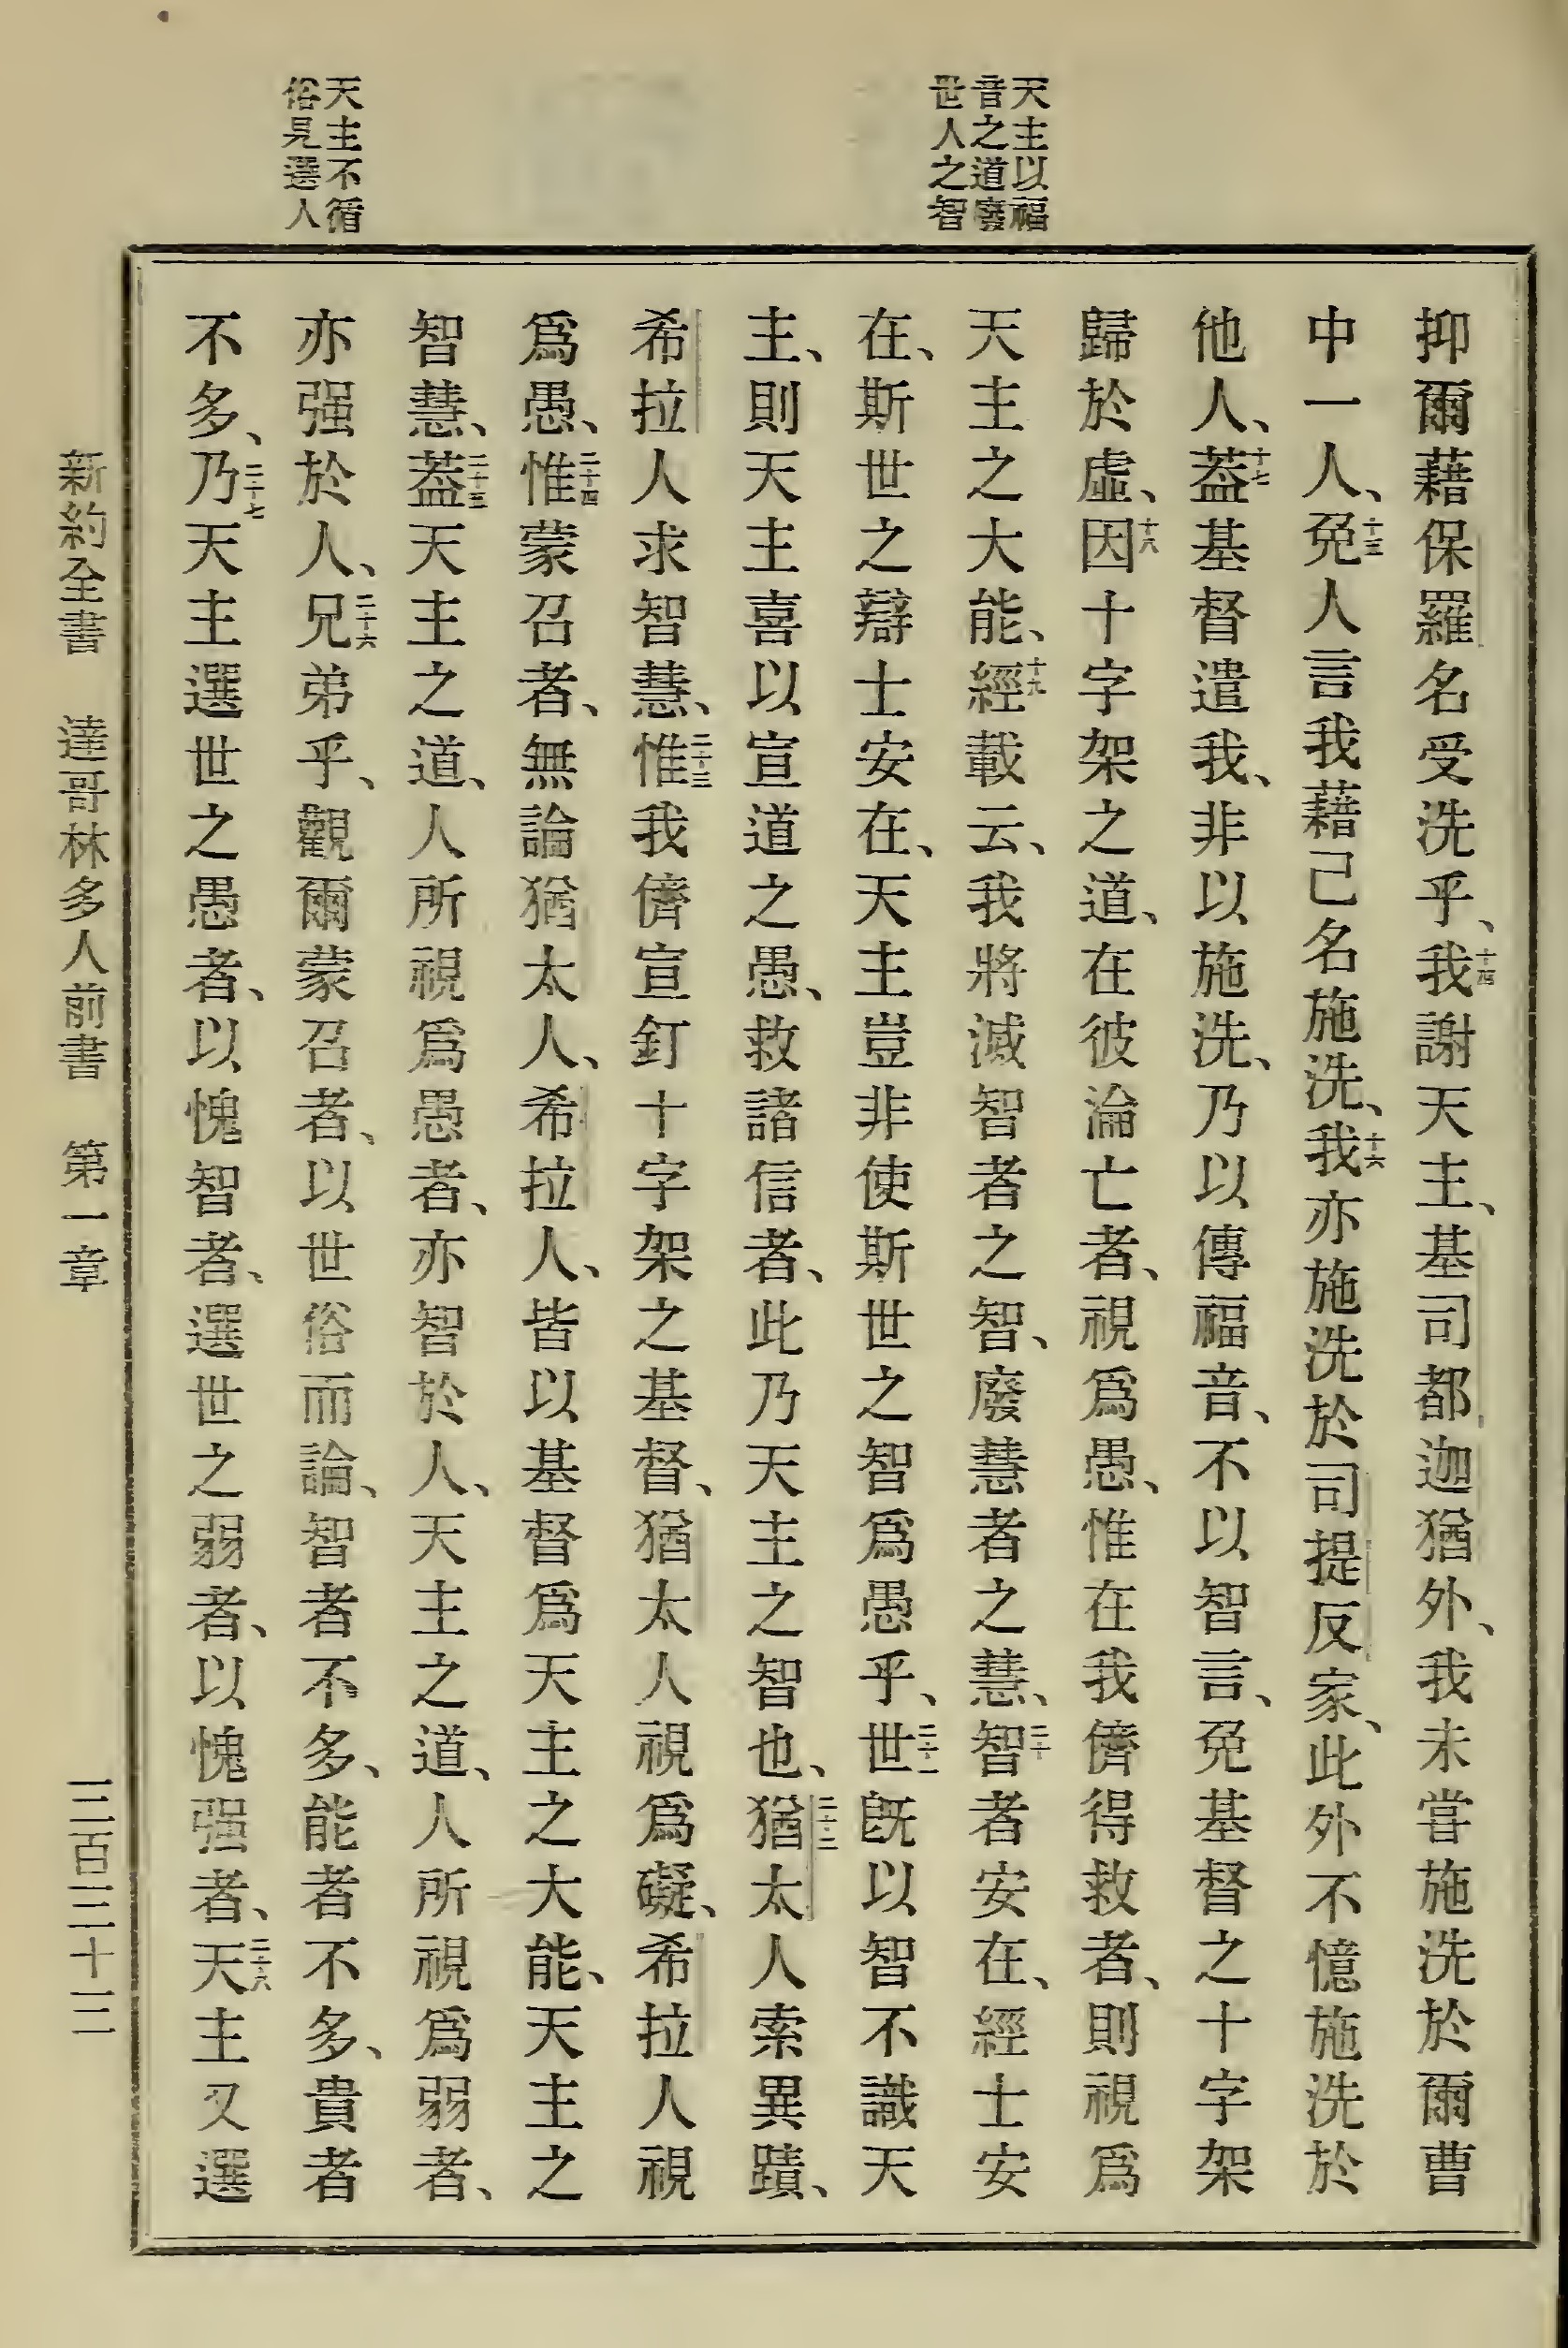 天主以福
音之道廢
世人之智
天主不循
俗見選人
抑爾藉保羅名受洗乎、十四我謝天主、基司都迦猶外、我未嘗施洗於爾曹
中一人、十五免人言我藉己名施洗、十六我亦施洗於司提反家、此外不憶施洗於
他人、十七葢基督遣我、非以施洗、乃以傳福音、不以智言、免基督之十字架
歸於虛、十八因十字架之道、在彼淪亡者、視爲愚、惟在我儕得救者、則視爲
天主之大能、十九經載云、我將滅智者之智、廢慧者之慧、二十智者安在、經士安
在、斯世之辯士安在、天主豈非使斯世之智爲愚乎、二十一世旣以智不識天
主、則天主喜以宣道之愚、救諸信者、此乃天主之智也、二十二猶太人索異蹟、
希拉人求智慧、二十三惟我儕宣釘十字架之基督、猶太人視爲礙、希拉人視
爲愚、二十四惟蒙召者、無論猶太人、希拉人、皆以基督爲天主之大能、天主之
智慧、二十五葢天主之道、人所視爲愚者、亦智於人、天主之道、人所視爲弱者、
亦强於人、二十六兄弟乎、觀爾蒙召者、以世俗而論、智者不多、能者不多、貴者
不多、二十七乃天主選世之愚者、以愧智者、選世之弱者、以愧强者、二十八天主又選
新約全書　達哥林多人前書　第一章　三百三十三